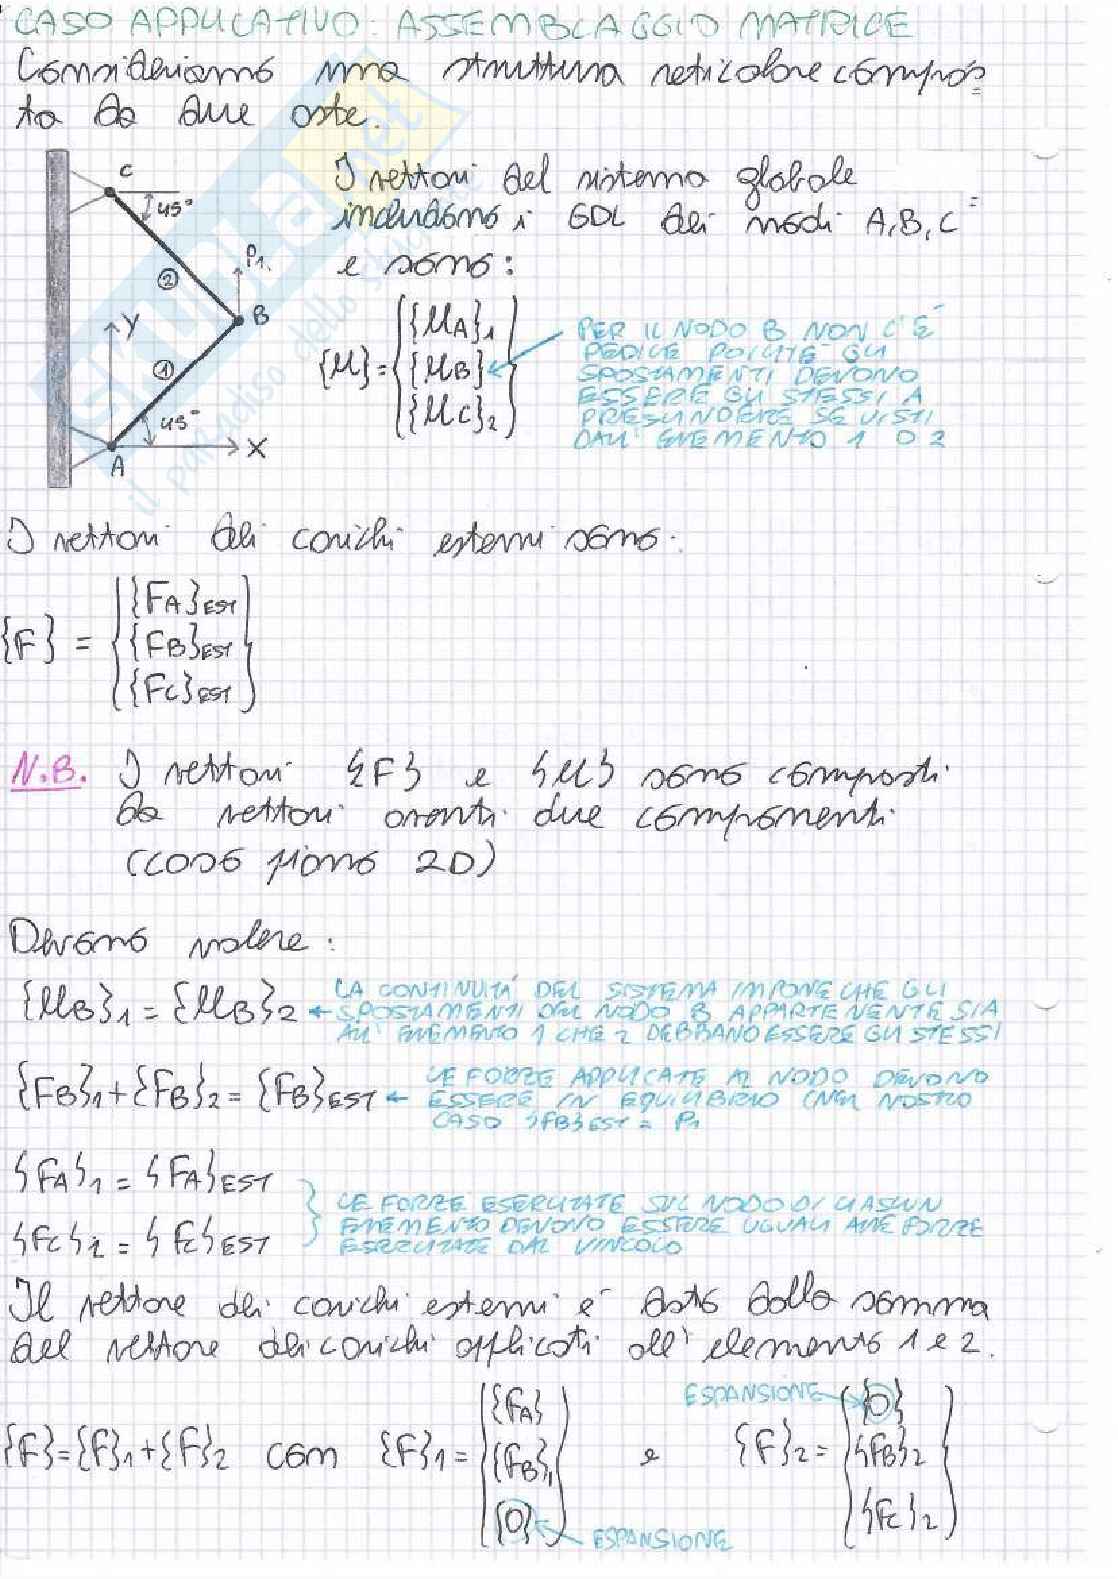 CASO APPLICATIVO: ASSEMBLAGGIO MATRICE
Consideriamo una struttura reticolare compos=
ta da due aste.
C
45°
2
P1
B
Y
1
45°
A
X
I vettori del sistema globale
includono i GDL dei nodi A,B,C
e sono:
{u} = { {uA}1
{uB}
{uC}2 }
PER IL NODO B NON C'È
PEDICE POICHÉ GLI
SPOSTAMENTI DEVONO
ESSERE GLI STESSI A
PRESCINDERE SE VISTI
DALL'ELEMENTO 1 O 2
I vettori dei carichi esterni sono:
{F} = { {FA}EST
{FB}EST
{FC}EST }
N.B. I vettori {F} e {u} sono composti
da vettori aventi due componenti
(caso piano 2D)
Devono valere:
{uB}1 = {uB}2 ← LA CONTINUITÀ DEL SISTEMA IMPONE CHE GLI
SPOSTAMENTI DEL NODO B APPARTENENTE SIA
ALL'ELEMENTO 1 CHE 2 DEBBANO ESSERE GLI STESSI
{FB}1 + {FB}2 = {FB}EST ← LE FORZE APPLICATE AL NODO DEVONO
ESSERE IN EQUILIBRIO (NEL NOSTRO
CASO {FB}EST = P1
{FA}1 = {FA}EST
{FC}2 = {FC}EST
LE FORZE ESERCITATE SUL NODO DI CIASCUN
ELEMENTO DEVONO ESSERE UGUALI ALLE FORZE
ESERCITATE DAL VINCOLO
Il vettore dei carichi esterni è dato dalla somma
del vettore dei carichi applicati all'elemento 1 e 2.
{F} = {F}1 + {F}2 con {F}1 = { {FA}
{FB}1
{0} } ← ESPANSIONE
e {F}2 = { {0}
{FB}2
{FC}2 }
ESPANSIONE
SKUOLA.net
il paradiso dello studente